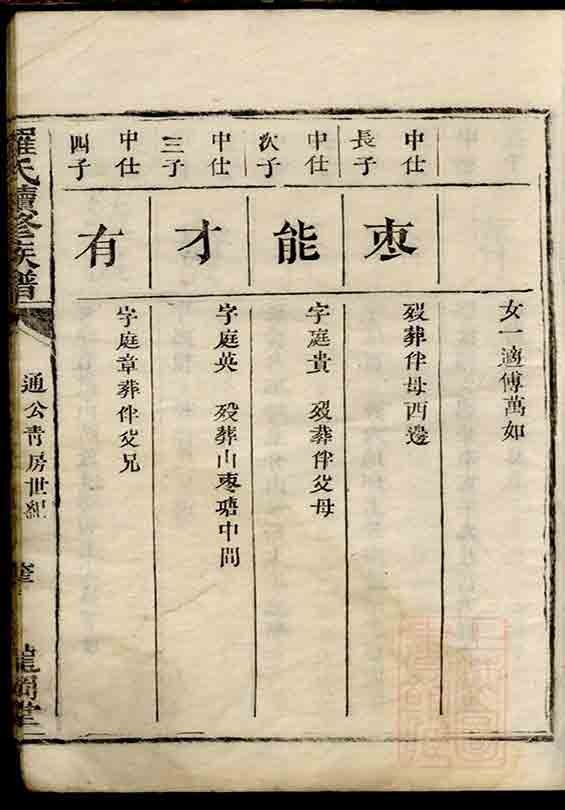 女一適傅萬如
中仕
長子
枣
歿葬伴母西邊
中仕
次子
能
字庭貴 歿葬伴父母
中仕
三子
才
字庭英 歿葬山枣塘中間
中仕
四子
有
字庭章葬伴父兄
羅氏續修族譜
通公青房世紀